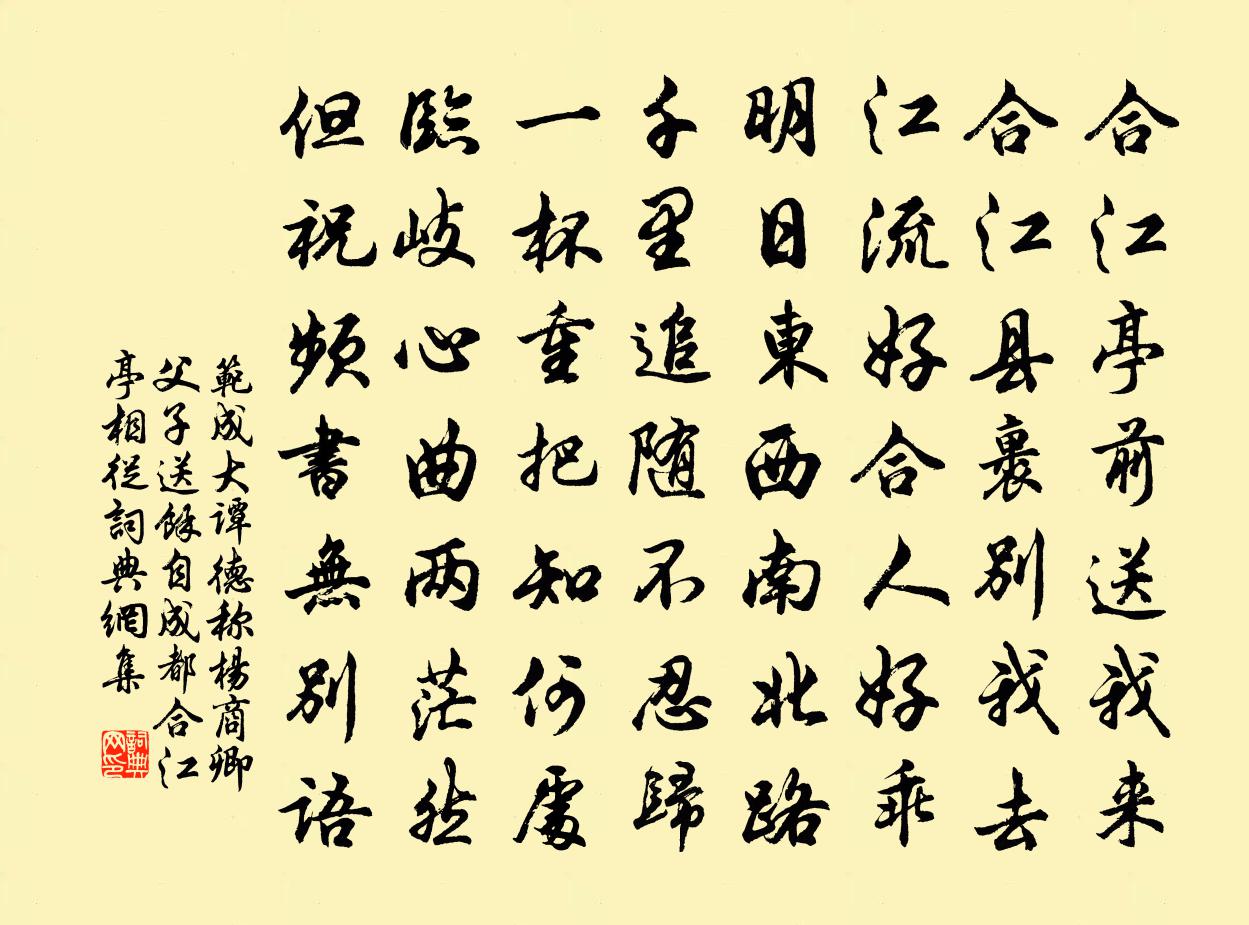 合江亭前送我来
合江县裏别我去
江流好合人好乖
明日東西南北路
千里追随不忍歸
一杯重把知何處
臨歧心曲两茫然
但祝频書無别語
範成大谭德称楊商卿
父子送餘自成都合江
亭相從詞典網集
詞典网印